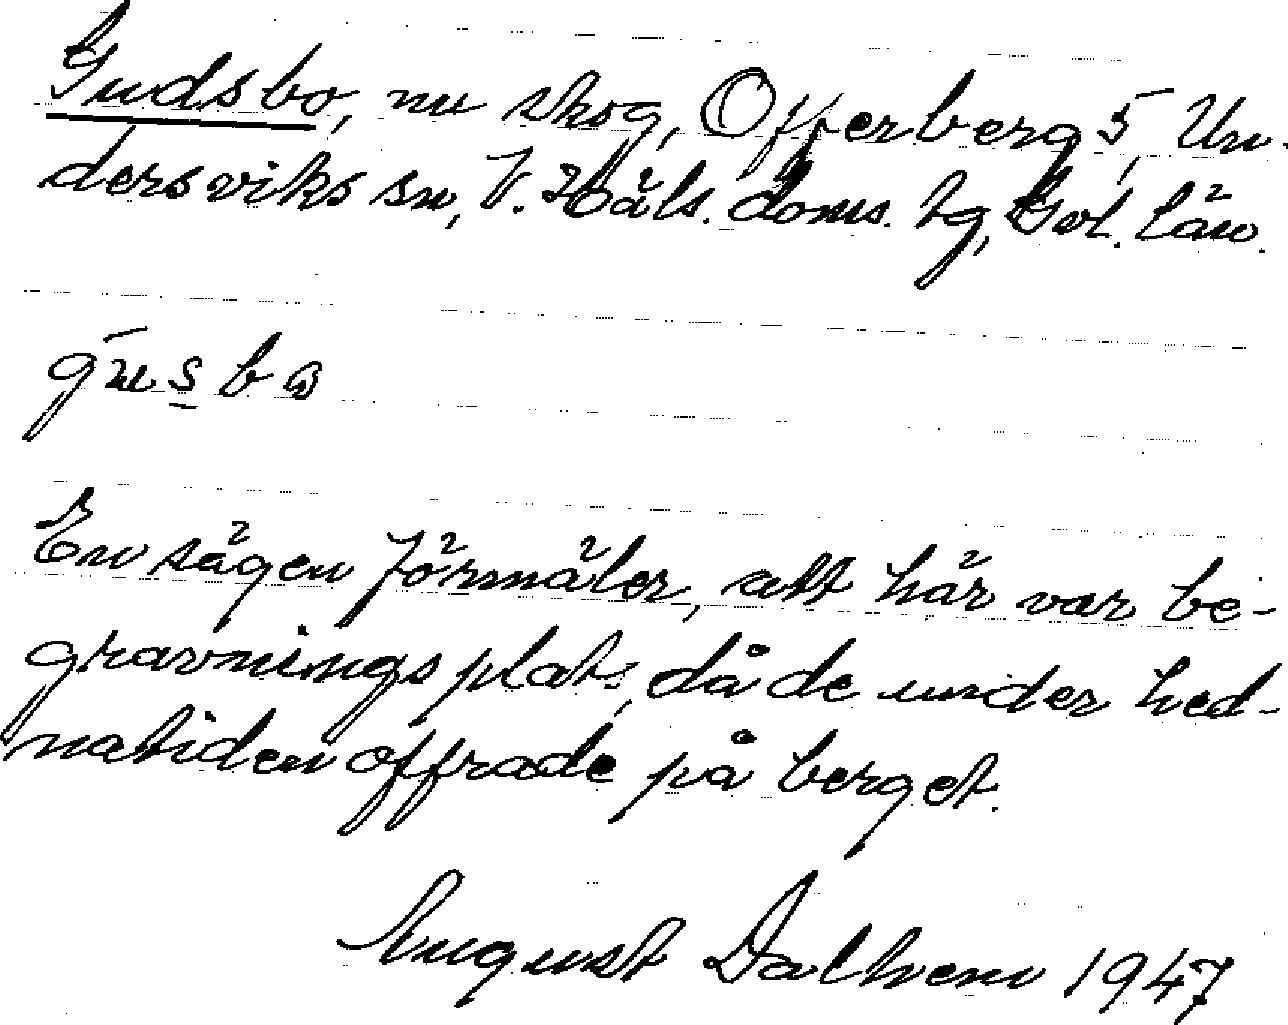 Gudsbo, nu skog, Offerberg 5, Un-
dersviks sn, V. Häls. doms. tg, Gvl. län.
gūsbo
En sägen förmäler, att här var be-
gravningsplats, då de under hed-
natiden offrade på berget.
August Dalhem 1947